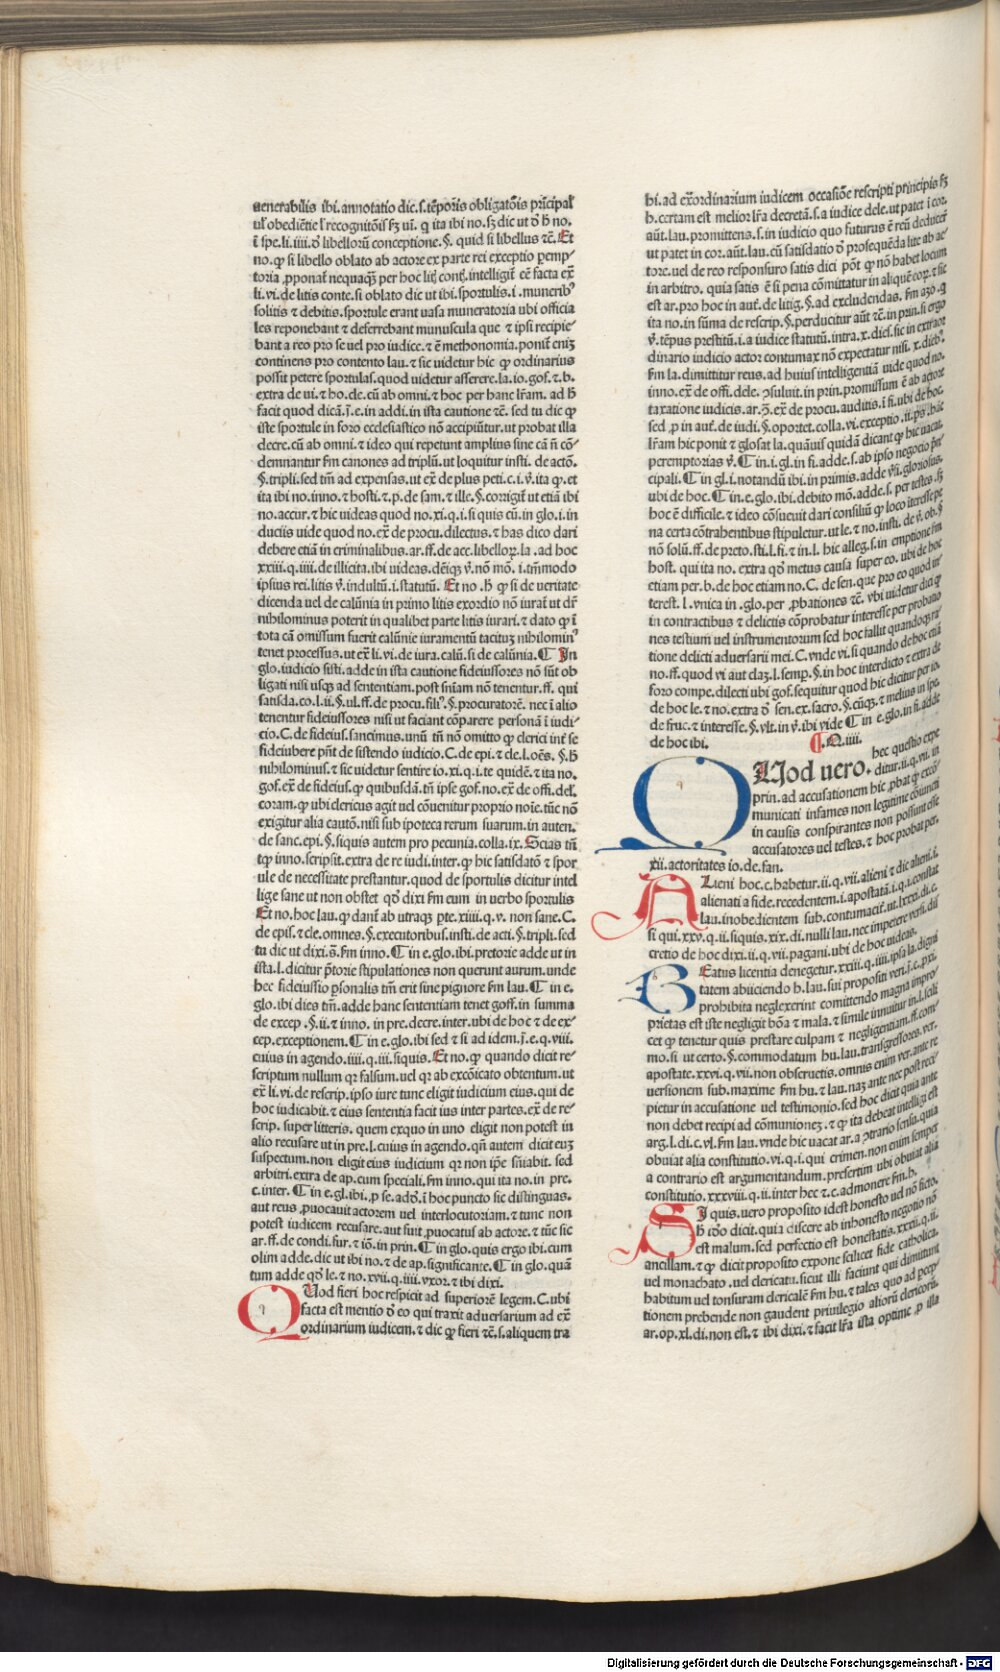 uenerabilis ibi. annotatio dic. s. tẽporis obligatõis prĩcipal'
ul' obediẽtie l' recognitõis ſꝫ ui. ꝗ ita ibi no. ſꝫ dic ut ð ħ no.
ĩ spe. li. iiii. ð libelloꝝ conceptione. §. quid si libellus ⁊c̃. Et
no. ꝙ si libello oblato ab actore ex parte rei exceptio perẽp⸗
toria ꝓponat̃ nequaqꝫ per hoc litẽ cont̃. intelligit̃ eẽ facta ex̃
li. vi. de litis conte. si oblato dic ut ibi. sportulis. i. munerib⁹
solitis ⁊ debitis. sportule erant uasa muneratoria ubi officia
les reponebant ⁊ deferrebant munuscula que ⁊ ipsi recipie⸗
bant a reo pro se uel pro iudice. ⁊ ẽ methonomia. ponit̃ eniꝫ
continens pro contento lau. ⁊ sic uidetur hic ꝙ ordinarius
possit petere sportulas. quod uidetur asserere. la. io. gof. ⁊. b.
extra de ui. ⁊ ho. de. cũ ab omni. ⁊ hoc per hanc lr̃am. ad ħ
facit quod dicã. j̃. e. in addi. in ista cautione ⁊c̃. sed tu dic ꝙ
iste sportule in foro ecclesiastico nõ accipiũtur. ut probat illa
decre. cũ ab omni. ⁊ ideo qui repetunt amplius sine cã ñ cõ⸗
demnantur fm canones ad triplũ. ut loquitur insti. de actõ.
§. tripli. sed tm̃ ad expensas. ut ex̃ de plus peti. c. i. ṽ. ita ꝙ. et
ita ibi no. inno. ⁊ hosti. ⁊. p. de sam. ⁊ ille. §. corrigit̃ ut etiã ibi
no. accur. ⁊ hic uideas quod no. xi. q. i. si quis cũ. in glo. i. in
duciis vide quod no. ex̃ de procu. dilectus. ⁊ has dico dari
debere etiã in criminalibus. ar. ff. de acc. libelloꝝ. la. ad hoc
xxiii. q. iiii. de illicita. ibi uideas. dẽiqꝫ ṽ. nõ mõ. i. tm̃modo
ipsius rei. litis ṽ. indultũ. i. statutũ. Et no. ħ ꝙ si de veritate
dicenda uel de calũnia in primo litis exordio nõ iurat̃ ut dr̃
nihilominus poterit in qualibet parte litis iurari. ⁊ dato ꝙ ĩ
tota cã omissum fuerit calũnie iuramentũ tacituꝫ nihilomin⁹
tenet processus. ut ex̃ li. vi. de iura. calũ. si de calũnia. ¶ In
glo. iudicio sisti. adde in ista cautione fideiussores nõ sũt ob
ligati nisi usqꝫ ad sententiam. post sn̄iam nõ tenentur. ff. qui
satisda. co. l. ii. §. ul. ff. de procu. fili⁹. §. procuratorẽ. nec ĩ alio
tenentur fideiussores nisi ut faciant cõparere personã ĩ iudi⸗
cio. C. de fideius. sancimus. unũ tm̃ nõ omitto ꝙ clerici int̃ se
fideiubere pñt de sistendo iudicio. C. de epi. ⁊ cle. l. oẽs. §. ħ
nihilominus. ⁊ sic videtur sentire io. xi. q. i. te quidẽ. ⁊ ita no.
ex̃ de fideius. gof. ꝙ quibusdã. tm̃ ipse gof. no. ex̃ de offi. del'.
coram. ꝙ ubi clericus agit uel cõuenitur proprio noĩe. tũc nõ
exigitur alia cautõ. nisi sub ipoteca rerum suarum. in auten.
de sanc. epi. §. siquis autem pro pecunia. colla. ix. Scias tm̃
tꝙ inno. scripsit. extra de re iudi. inter. ꝙ hic satisdatõ ⁊ spor
ule de necessitate prestantur. quod de sportulis dicitur intel
lige sane ut non obstet qð dixi fm eum in uerbo sportulis
Et no. hoc lau. ꝙ danẽ ab utraqꝫ pte. xiiii. q. v. non sane. C.
de epis. ⁊ cle. omnes. §. executoribus. insti. de acti. §. tripli. sed
tu dic ut dixi. s̃. fm inno. ¶ in e. glo. ibi. pretorie adde ut in
ista. l. dicitur p̃torie stipulationes non querunt aurum. unde
hec fideiussio ꝑsonalis tm̃ erit sine pignore fm lau. ¶ in e.
glo. ibi dies tm̃. adde hanc sententiam tenet goff. in summa
de excep. §. ii. ⁊ inno. in pre. decre. inter. ubi de hoc ⁊ de ex⸗
cep. exceptionem. ¶ in e. glo. ibi sed ⁊ si ad idem. j̃. e. q. viii.
cuius in agendo. iiii. q. iii. siquis. Et no. ꝙ quando dicit re⸗
scriptum nullum qꝛ falsum. uel qꝛ ab excõicato obtentum. ut
ex̃ li. vi. de rescrip. ipso iure tunc eligit iudicium eius. qui de
hoc iudicabit. ⁊ eius sententia facit ius inter partes. ex̃ de re⸗
scrip. super litteris. quem exquo in uno eligit non potest in
alio recusare ut in pre. l. cuius in agendo. qñ autem dicit euꝫ
suspectum. non eligit eius iudicium qꝛ non ip̃e sñiabit. sed
arbitri. extra de ap. cum speciali. fm inno. qui ita no. in pre.
c. inter. ¶ in e. gl. ibi. ꝓ se. adð. ĩ hoc puncto sic distinguas.
aut reus ꝓuocauit actorem uel interlocutoriam. ⁊ tunc non
potest iudicem recusare. aut fuit ꝓuocatus ab actore. ⁊ tũc sic
ar. ff. de condi. fur. ⁊ iõ. in prin. ¶ in glo. quis ergo ibi. cum
olim adde. dic ut ibi no. ⁊ de ap. significante. ¶ in glo. quã
tum adde qð le. ⁊ no. xvii. q. iiii. vxor. ⁊ ibi dixi.
QUod fieri hoc respicit ad superiorẽ legem. C. ubi
facta est mentio ð eo qui traxit aduersarium ad ex̃
ordinarium iudicem. ⁊ dic ꝙ fieri ⁊c̃. s. aliquem tra
hi. ad ex̃ordinarium iudicem occasiõe rescripti principis ſꝫ
h. certam est melior lr̃a decretã. s. a iudice dele. ut patet i cor.
aũt. lau. promittens. s. in iudicio quo futurus ẽ reũ deducet̃
ut patet in cor. aũt. lau. cũ satisdatio ð prosequẽda lite ab ac⸗
tore. uel de reo responsuro satis dici põt ꝙ nõ habet locum
in arbitro. quia satis ẽ si pena cõmittatur in aliquẽ cor. ⁊ sic
est ar. pro hoc in aut̃. de litig. §. ad excludendas. fm azo. ꝗ
ita no. in sũma de rescrip. §. perducitur aũt ⁊c̃. in prin. si ergo
ṽ. tẽpus prestitũ. i. a iudice statutũ. intra. x. dies. sic in extraor
dinario iudicio actor contumax nõ expectatur nisi. x. dieb⁹.
fm la. dimittitur reus. ad huius intelligentiã uide quod no.
inno. ex̃ de offi. dele. ꝯsuluit. in prin. promissum ẽ ab actore
taxatione iudicis. ar. ꝯ. ex̃ de procu. auditis. ĩ fi. ubi de hoc.
sed ꝓ in aut̃. de iudi. §. oportet. colla. vi. exceptio. ii. pꝫ. hãc
lr̃am hic ponit ⁊ glosat la. quãuis quidã dicant ꝙ hic uacat.
peremptorias ṽ. ¶ in. i. gl. in fi. adde. s. ab ipso negocio p̃ri
cipali. ¶ in gl. i. notandũ ibi. in primis. adde ṽsi. gloriosus.
ubi de hoc. ¶ in. e. glo. ibi. debito mõ. adde. s. per testes. ſꝫ
hoc ẽ difficile. ⁊ ideo cõsueuit dari consiliũ ꝙ loco iteresse pe
na certa cõtrahentibus stipuletur. ut le. ⁊ no. insti. de ṽ. ob. §
nõ solũ. ff. de preto. sti. l. fi. ⁊ in. l. hic alleg. s. in emptione fm
host. qui ita no. extra qð metus causa super eo. ubi de hoc
etiam per. b. de hoc etiam no. C. de sen. que pro eo quod in⸗
terest. l. vnica in. glo. per ꝓbationes ⁊c̃. vbi uidetur dici ꝙ
in contractibus ⁊ delictis cõprobatur interesse per probatio
nes testium uel instrumentorum sed hoc fallit quandoqꝫ ra⸗
tione delicti aduersarii mei. C. vnde vi. si quando de hoc etiã
no. ff. quod vi aut daꝫ. l. semp. §. in hoc interdicto ⁊ extra de
foro compe. dilecti ubi gof. sequitur quod hic dicitur per io.
de hoc le. ⁊ no. extra ð sen. ex. sacro. §. cũqꝫ. ⁊ melius in spe.
de fruc. ⁊ interesse. §. vlt. in ṽ. ibi vide ¶ in e. glo. in fi. adde
de hoc ibi. ¶. Q. iiii.
QUod uero. hec questio expe
ditur. ii. q. vii. in
prin. ad accusationem hic ꝓbat ꝙ excõ⸗
municati infames non legitime cõiuncti
in causis conspirantes non possunt esse
accusatores uel testes. ⁊ hoc probat per.
xii. actoritates io. de fan.
ALieni hoc. c. habetur. ii. q. vii. alieni ⁊ dic alieni. i.
alienati a fide. recedentem. i. apostatã. i. q. i. constat
lau. inobedientem sub. contumacit̃. ut. lxxxi. di. c.
si qui. xxv. q. ii. siquis. xix. di. nulli lau. nec impetere versi. dis
cretio de hoc dixi. ii. q. vii. pagani. ubi de hoc uideas.
BEatus licentia denegetur. xxiii. q. iiii. ipsa la. digni
tatem abiiciendo h. lau. sui propositi veri. j̃. c. pxi.
prohibita neglexerint comittendo magna impro⸗
prietas est iste negligit bõa ⁊ mala. ⁊ simile innuitur in. l. scili
cet ꝙ tenetur quis prestare culpam ⁊ negligentiam. ff. com⸗
mo. si ut certo. §. commodatum hu. lau. transgressores. ver.
apostate. xxvi. q. vii. non obseruetis. omnis enim ver. ante re
versionem sub. maxime fm hu. ⁊ lau. naꝫ ante nec post reci⸗
pietur in accusatione uel testimonio. sed hoc dicit quia ante
non debet recipi ad cõmunioneꝫ. ⁊ ꝙ ita debeat intelligi est
arg. l. di. c. vl. fm lau. vnde hic uacat ar. a ꝯtrario sensu. quia
obuiat alia constitutio. vi. q. i. qui crimen. non enim semper
a contrario est argumentandum. presertim ubi obuiat alia
constitutio. xxxviii. q. ii. inter hec ⁊. c. admonere fm. h.
SI quis. uero proposito idest honesto uel nõ ficto.
ħ iõo dicit. quia discere ab inhonesto negotio nõ
est malum. sed perfectio est honestatis. xxxii. q. ii.
ancillam. ⁊ ꝙ dicit proposito expone scilicet fide catholica.
uel monachato. uel clericatu. sicut illi faciunt qui dimittunt
habitum uel tonsuram dericalẽ fm hu. ⁊ tales quo ad ꝑcep⸗
tionem prebende non gaudent priuilegio alioꝝ clericoꝝ.
ar. op. xl. di. non est. ⁊ ibi dixi. ⁊ facit lr̃a ista optime. ꝓ illa
Digitalisierung gefördert durch die Deutsche Forschungsgemeinschaft - DFG